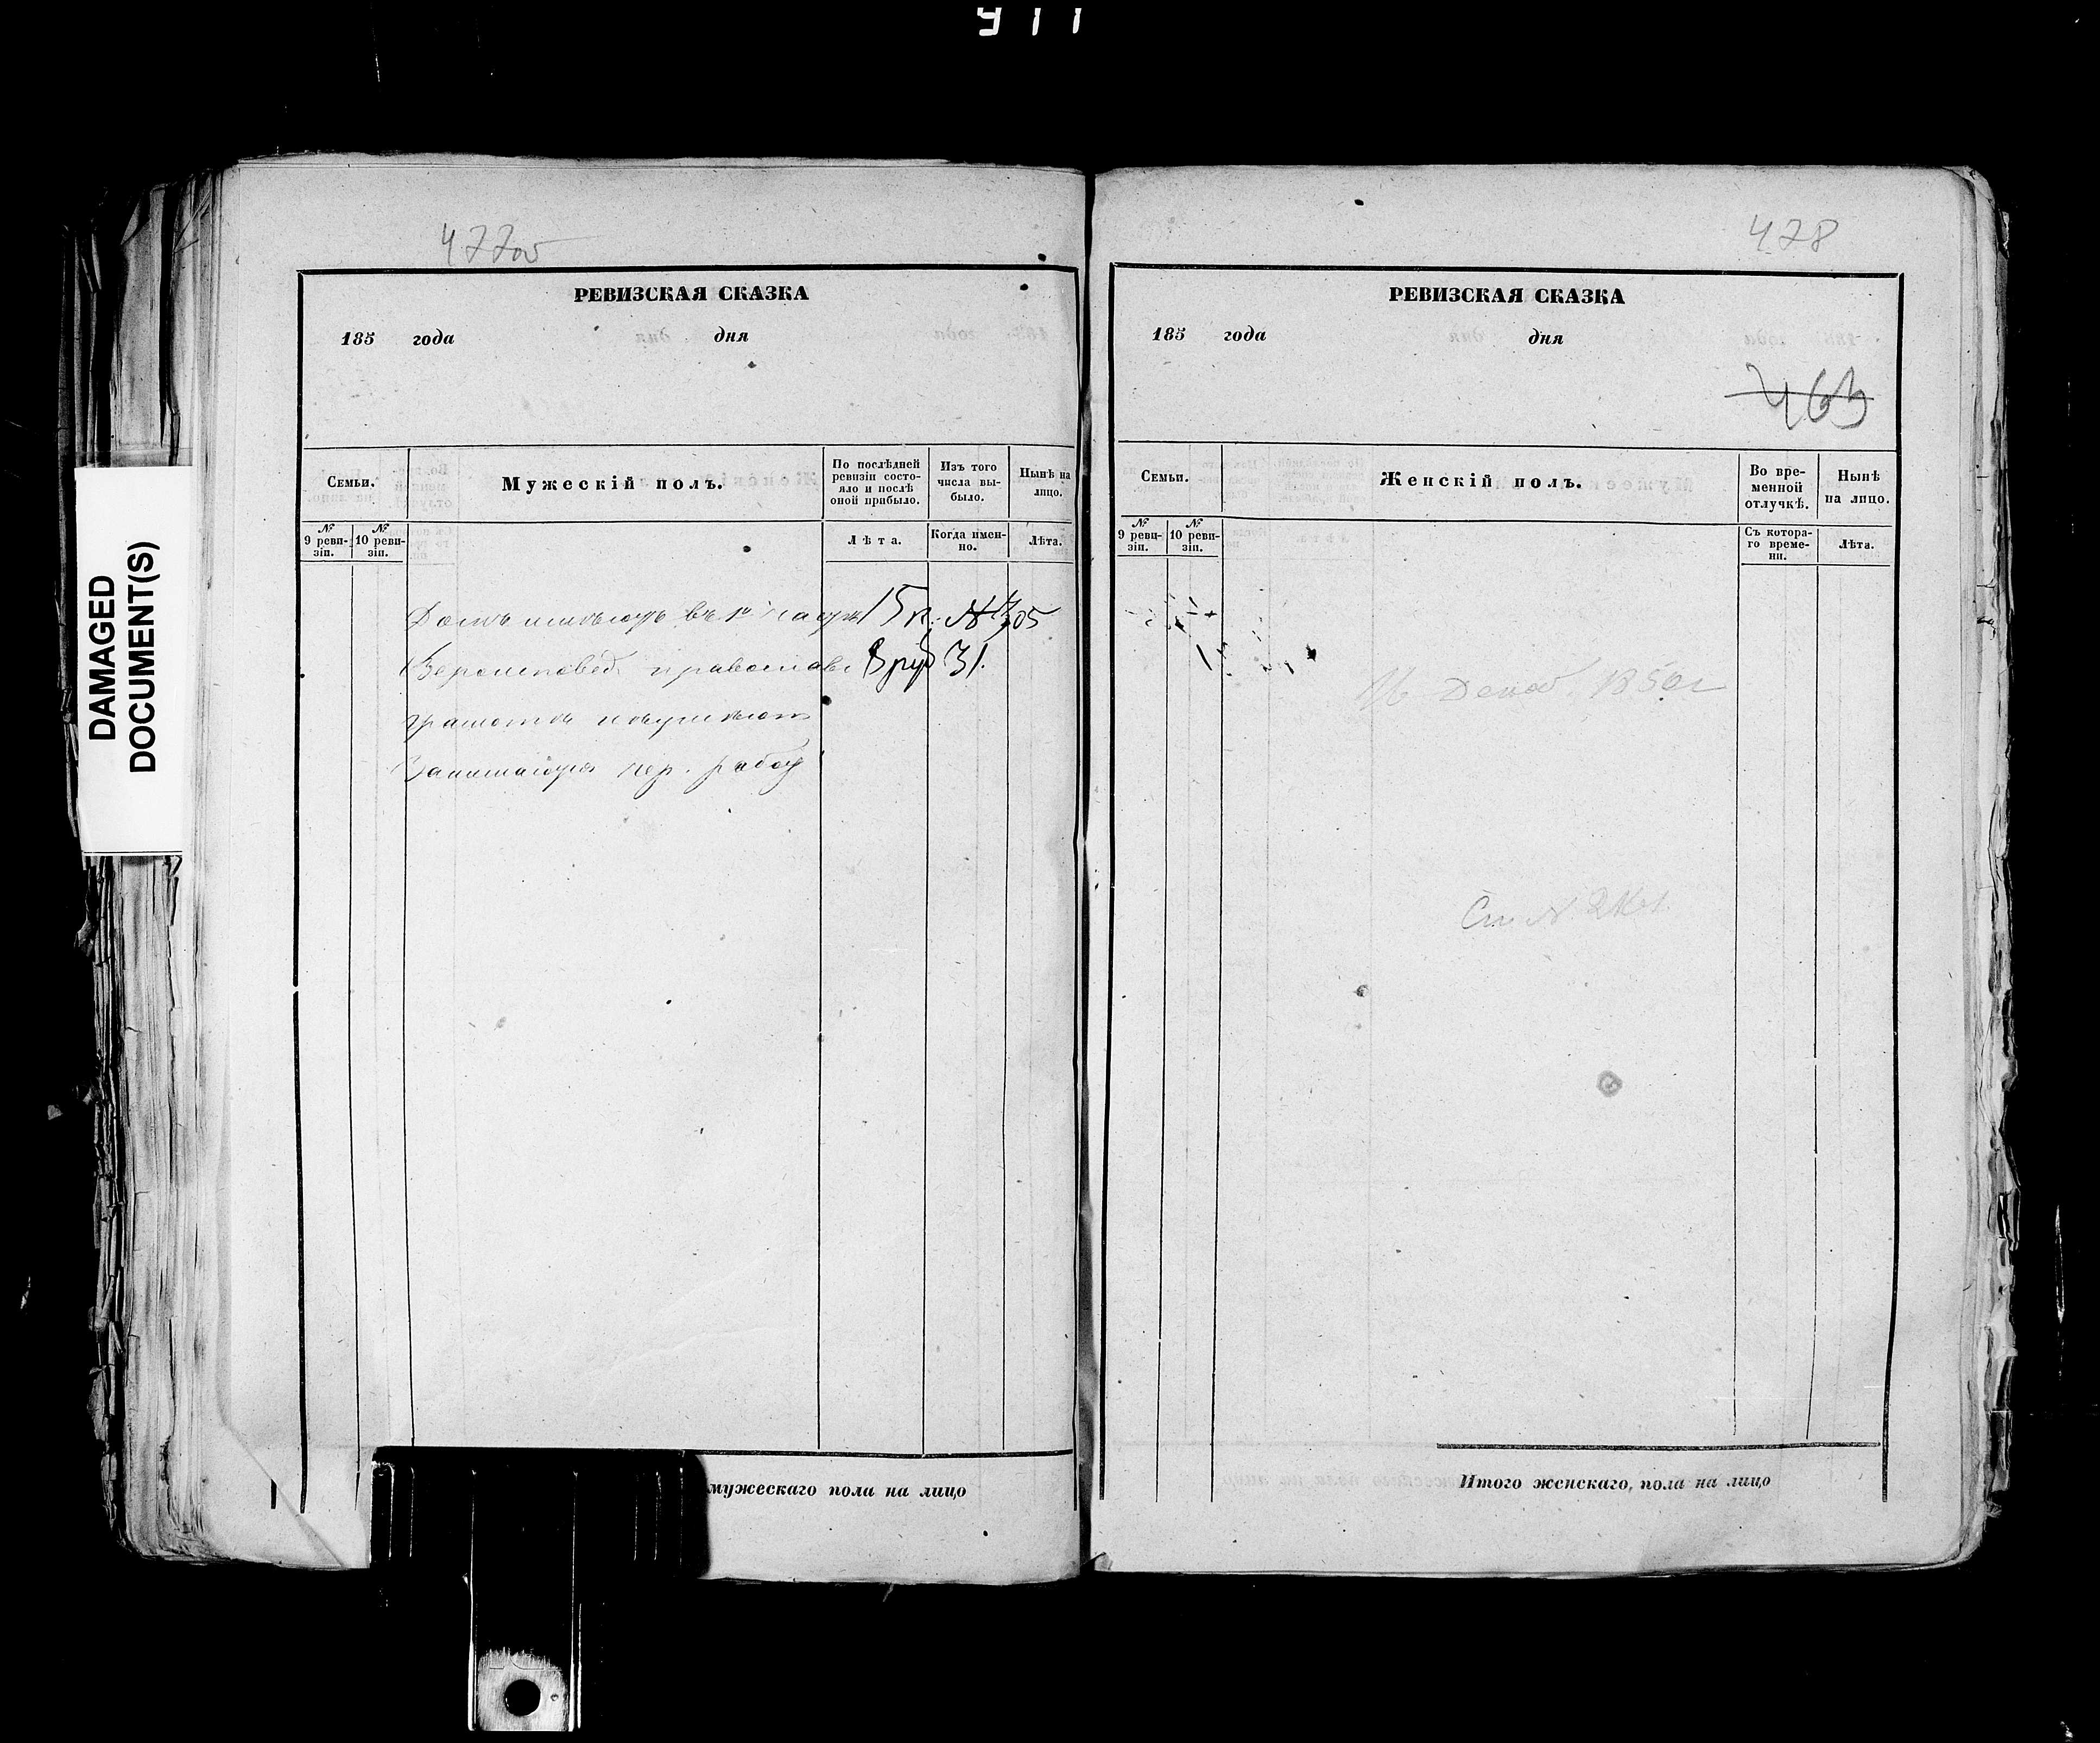 911
DAMAGED
DOCUMENT(S)
477об
РЕВИЗСКАЯ СКАЗКА
185 года дня
Семьи.
Мужескій полъ.
По послѣдней
ревизіи состо-
яло и послѣ
оной прибыло.
Изъ того
числа вы-
было.
Нынѣ на
лицо.
№
9 реви-
зіи.
№
10 реви-
зіи.
Лѣта.
Когда имен-
но.
Лѣта.
Домъ имѣютъ въ 1й части 15 к. № 305
Вероисповед. православ. 3 руб 31.
грамотѣ неумѣютъ
Занимаются чер. работ
мужескаго пола на лицо
478
РЕВИЗСКАЯ СКАЗКА
185 года дня
463
Семьи.
Женскій полъ.
Во вре-
менной
отлучкѣ.
Нынѣ
на лицо.
№
9 реви-
зіи.
№
10 реви-
зіи.
Съ котора-
го време-
ни.
Лѣта.
Декаб. 1850г
См №
Итого женскаго, пола на лицо